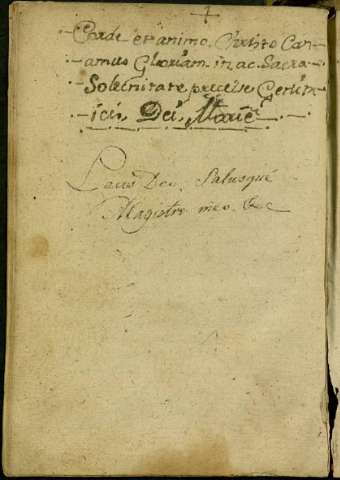 Corde et animo Christo Can-
amus Gloriam in ac Sacra
Solemnitate precise Genitr-
icis Dei Marie
Laus Deo, Salusqué
Magistro meo &c